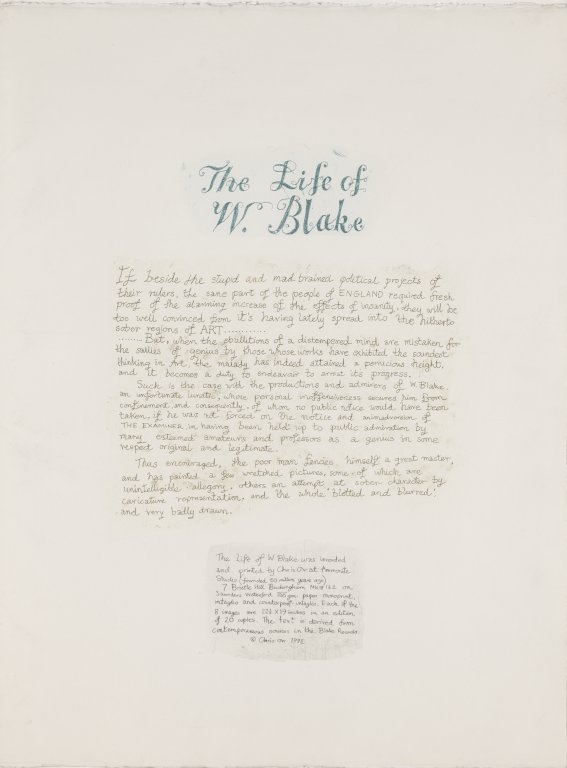 The Life of
W. Blake
If beside the stupid and mad brained political projects of
their rulers, the sane part of the people of ENGLAND required fresh
proof of the alarming increase of the effects of insanity, they will be
too well convinced from it's having lately spread into the hitherto
sober regions of ART............
........But, when the ebullitions of a distempered mind are mistaken for
the sallies of genius by those whose works have exhibited the soundest
thinking in Art, the malady has indeed attained a pernicious height,
and it becomes a duty to endeavor to arrest its progress.
Such is the case with the productions and admirers of W. Blake.
an unfortunate lunatic, whose personal inoffensiveness secures him from
confinement, and consequently, of whom no public notice would have been
taken, if he was not forced on the notice and animadversion of
THE EXAMINER in having been held up to public admiration by
many esteemed amateurs and professors as a genius in some
respect original and legitimate.
Thus encouraged, the poor man fancies himself a great master,
and has painted a few wretched pictures, some of which are
unintelligible allegory, others an attempt at sober character by
caricature representation, and the whole 'blotted and blurred',
and very badly drawn.
The Life of W. Blake was invented
and printed by Chris Orr at Ammonite
Studio (founded 60 million years ago)
7 Bristle Hill Buckingham MK18 1EZ on
Saunders Waterford paper monoprint,
intaglio and counterproof intaglio. Each of the
8 images are X19 inches in an edition
of 20 copies. The text is derived from
contemporaneous sources in the Blake Records.
© Chris Orr